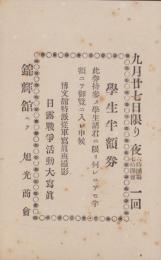 九月廿七日限り夜一回
學生半額券
此券持參ノ學生諸君ニ限リ何レニテモ半
額ニテ御覽ニ入レ申候
博文館特派從軍寫眞班撮影
日露戰爭活動大寫眞
錦輝館ニテ
旭光商會